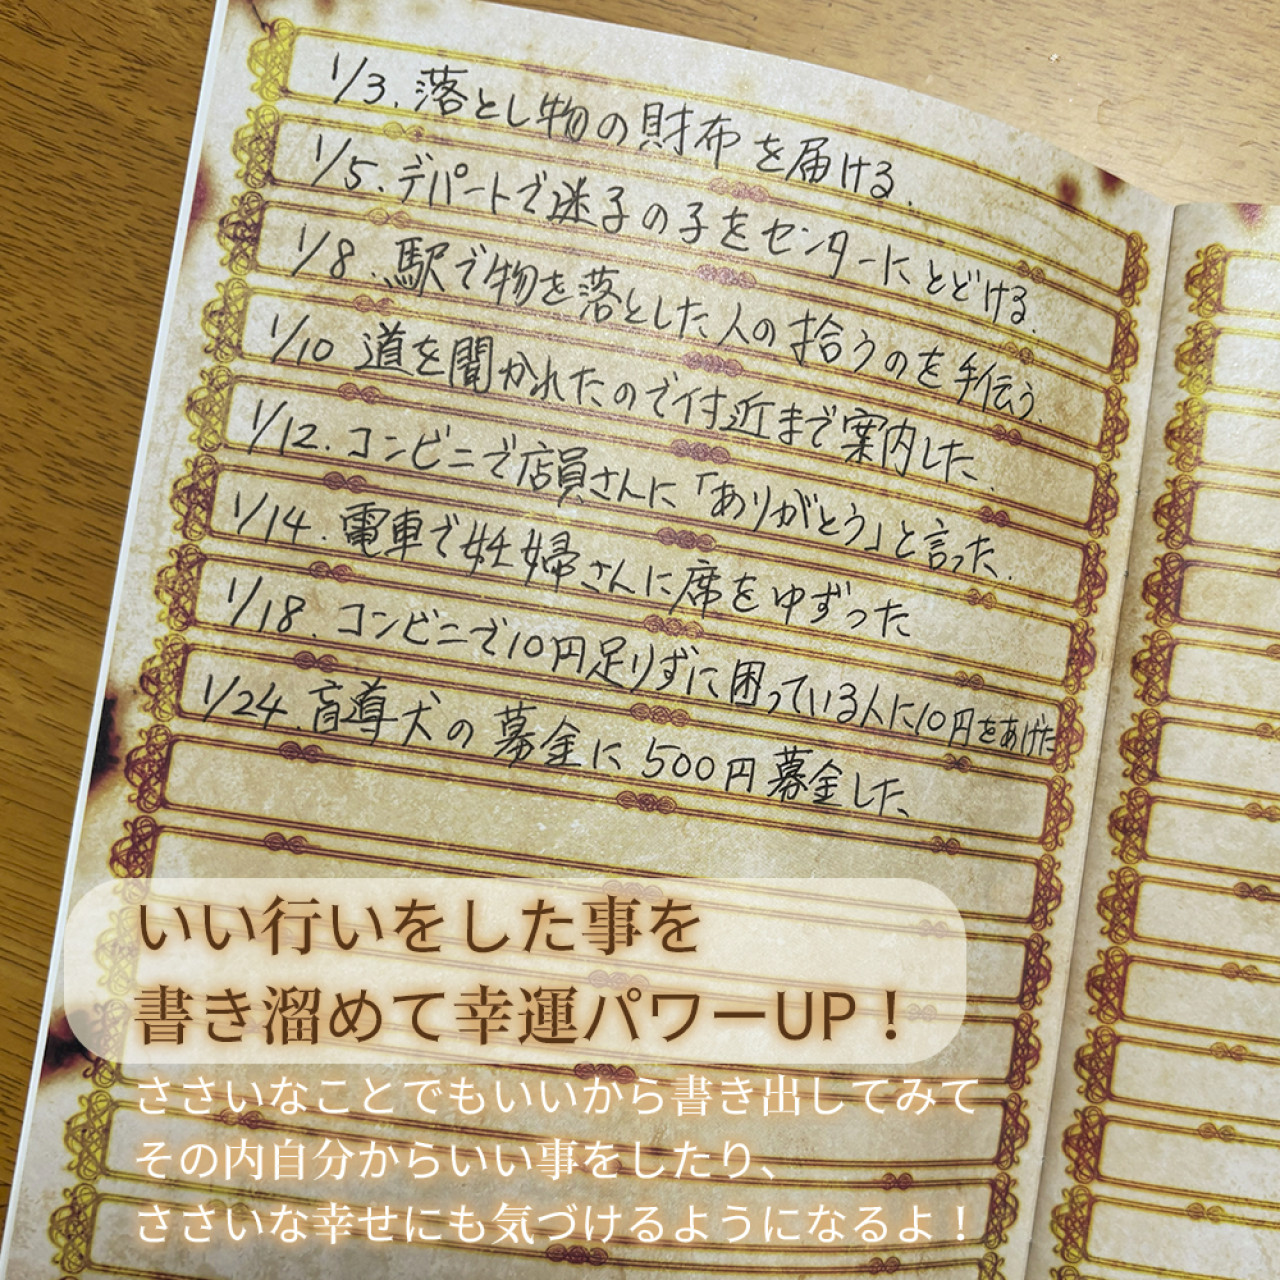 1/3. 落とし物の財布を届ける.
1/5. デパートで迷子の子をセンターにとどける.
1/8. 駅で物を落とした人の拾うのを手伝う.
1/10 道を聞かれたので付近まで案内した.
1/12. コンビニで店員さんに「ありがとう」と言った.
1/14. 電車で妊婦さんに席をゆずった
1/18. コンビニで10円足りずに困っている人に10円をあげた
1/24. 盲導犬の募金に500円募金した、
いい行いをした事を
書き溜めて幸運パワーUP！
ささいなことでもいいから書き出してみて
その内自分からいい事をしたり、
ささいな幸せにも気づけるようになるよ！